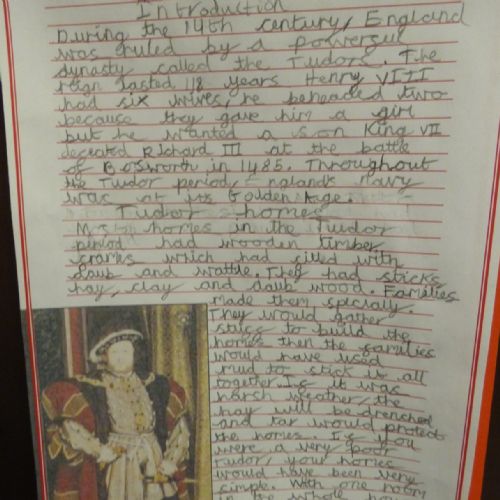 Introduction
During the 14th century, England
was ruled by a powerful
dynasty called the Tudors. The
reign lasted 118 years Henry VIII
had six wives, he beheaded two
because they gave him a girl
but he wanted a son King VII
defeated Richard III at the battle
of Bosworth in 1485. Throughout
the Tudor period, England's navy
was at its Golden Age.
Tudor's homes
Most homes in the Tudor
period had wooden timber
frames which had filled with
daub and wattle. They had sticks
hay, clay and daub wood. Families
made them specially.
They would gather
stuff to build the
homes then the families
would have used
mud to stick it all
together. If it was
harsh weather, the
hay will be drenched
and tar would protect
the homes. If you
were a very poor
Tudor, your homes
would have been very
simple. With one room
in the whole